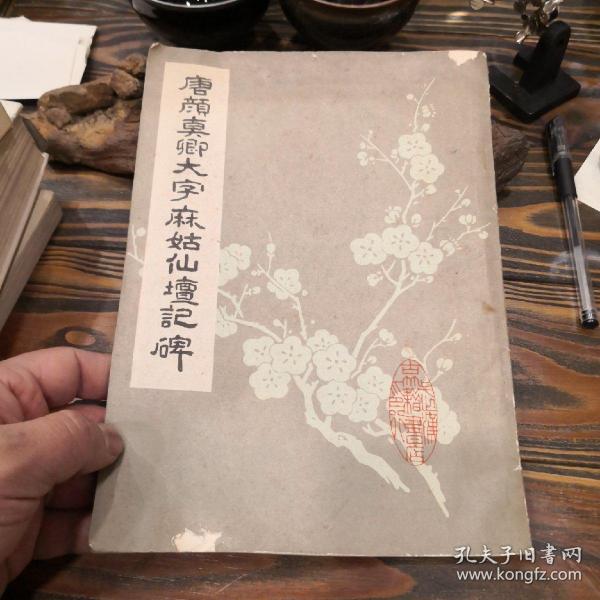 唐顔真卿大字麻姑仙壇記碑
古籍書店
孔夫子旧书网
www.kongfz.com